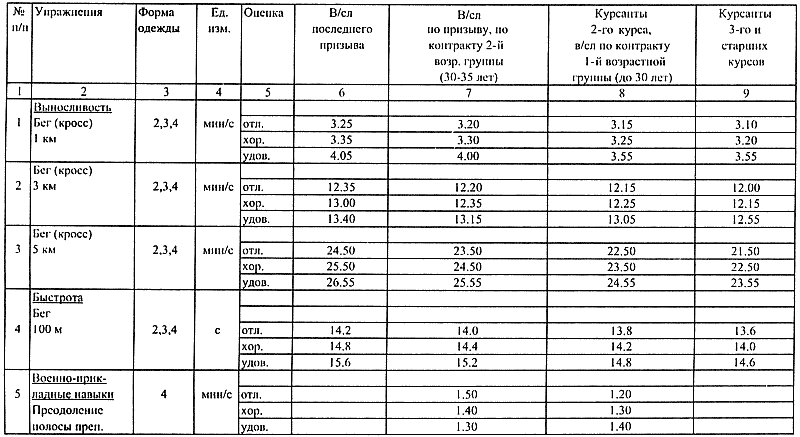 № п/п Упражнения Форма одежды Ед. изм. Оценка В/сл последнего призыва В/сл по призыву, по контракту 2-й возр. группы (30-35 лет) Курсанты 2-го курса, в/сл по контракту 1-й возрастной группы (до 30 лет) Курсанты 3-го и старших курсов
1 2 3 4 5 6 7 8 9
Выносливость
1 Бег (кросс) 2,3,4 мин/с отл. 3.25 3.20 3.15 3.10
1 км хор. 3.35 3.30 3.25 3.20
удов. 4.05 4.00 3.55 3.55
Бег (кросс)
2 3 км 2,3,4 мин/с отл. 12.35 12.20 12.15 12.00
хор. 13.00 12.35 12.25 12.15
удов. 13.40 13.15 13.05 12.55
Бег (кросс)
3 5 км 2,3,4 мин/с отл. 24.50 23.50 22.50 21.50
хор. 25.50 24.50 23.50 22.50
удов. 26.55 25.55 24.55 23.55
Быстрота
Бег
4 100 м 2,3,4 с отл. 14.2 14.0 13.8 13.6
хор. 14.8 14.4 14.2 14.0
удов. 15.6 15.2 14.8 14.6
Военно-прик-
5 ладные навыки 4 мин/с отл. 1.50 1.20
Преодоление хор. 1.40 1.30
полосы преп. удов. 1.30 1.40